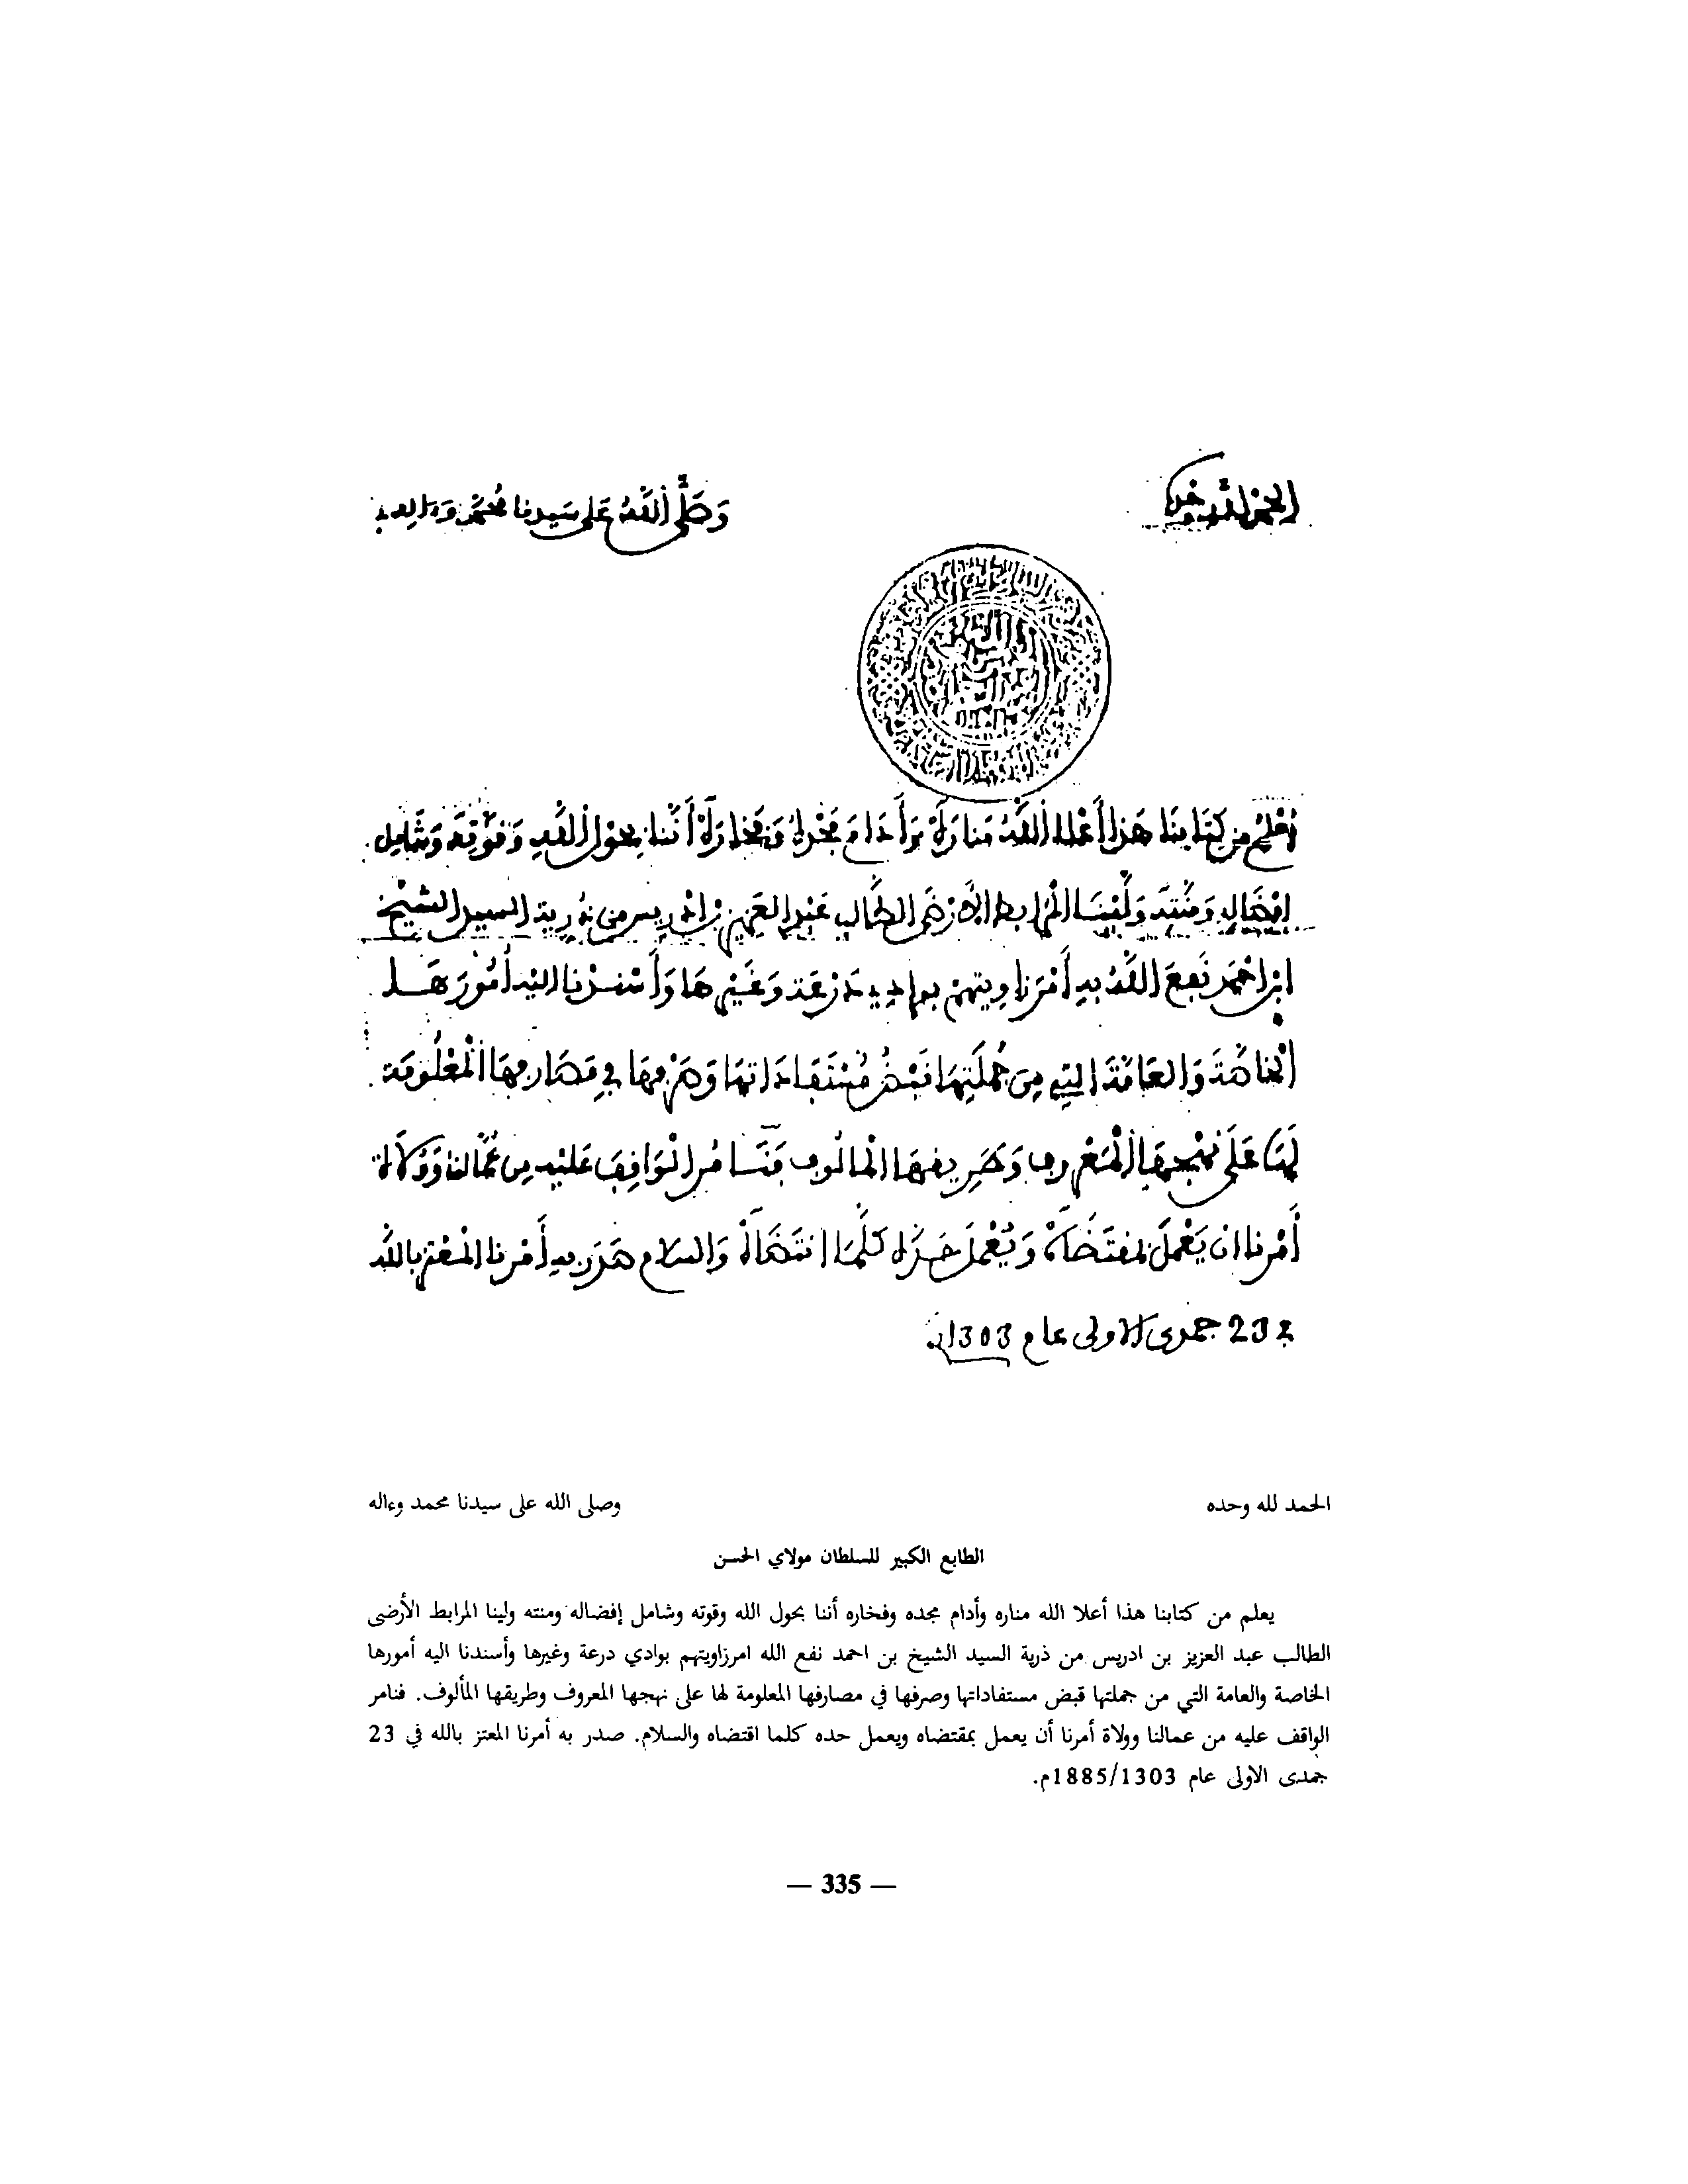 الحمد لله وحده
وصلى الله على سيدنا محمد وءاله
يعلم من كتابنا هذا أعلا الله مناره وأدام مجده وفخاره أننا بحول الله وقوته وشامل
إفضاله ومنته ولينا المرابط الأرضى الطالب عبد العزيز بن ادريس من ذرية السيد الشيخ
ابن احمد نفع الله به أمر زاويتهم بوادي درعة وغيرها وأسندنا اليه أمورها
الخاصة والعامة التي من جملتها قبض مستفاداتها وصرفها في مصارفها المعلومة
لها على نهجها المعروف وطريقها المالوف فنامر الواقف عليه من عمالنا وولاة
أمرنا ان يعمل بمقتضاه ويعمل حده كلما اقتضاه والسلام صدر به أمرنا المعتز بالله
في 23 جمدى الاولى عام 1303
الحمد لله وحده
وصلى الله على سيدنا محمد وءاله
الطابع الكبير للسلطان مولاي الحسن
يعلم من كتابنا هذا أعلا الله مناره وأدام مجده وفخاره أننا بحول الله وقوته وشامل إفضاله ومنته ولينا المرابط الأرضى
الطالب عبد العزيز بن ادريس من ذرية السيد الشيخ بن احمد نفع الله امرزاويتهم بوادي درعة وغيرها وأسندنا اليه أمورها
الخاصة والعامة التي من جملتها قبض مستفاداتها وصرفها في مصارفها المعلومة لها على نهجها المعروف وطريقها المألوف. فنامر
الواقف عليه من عمالنا وولاة أمرنا أن يعمل بمقتضاه ويعمل حده كلما اقتضاه والسلام. صدر به أمرنا المعتز بالله في 23
جمدى الاولى عام 1885/1303م.
— 335 —